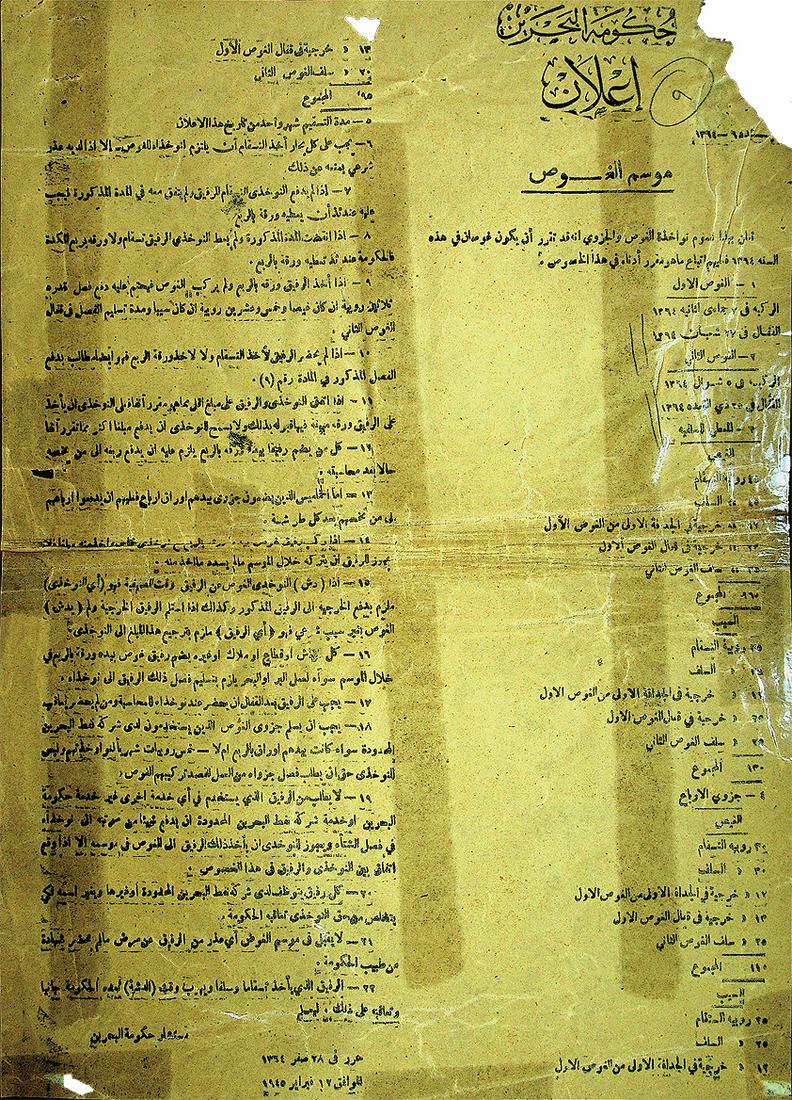 حكومة البحرين
إعلان
٩
١٣٦٤
موسم الغــوص
نواخذة الغوص والجزوي انه قد تقرر أن يكون غوصان في هذه
السنه ١٣٦٤ فعليهم اتباع ما هو مقرر أدناه في هذا الخصوص :
١ – الغوص الاول
الركبه فى ٧ جمادى الثانيه ١٣٦٤
القفال فى ٢٧ شعبان ١٣٦٤
٢ – الغوص الثاني
الركبه فى ٥ شوال ١٣٦٤
القفال فى ٢٥ ذى القعده ١٣٦٤
الغيص
روبية التسقام
« السلف
« خرجية فى الجدافة الاولى من الغوص الأول
« خرجية فى قفال الغوص الأول
« سلف الغوص الثاني
المجموع
السيب
٣٥ روبية التسقام
« السلف
« خرجية فى الجدافة الاولى من الغوص الاول
« خرجية في قفال الغوص الاول
٢٥ « سلف الغوص الثاني
١٣٠ المجموع
٤ – جزوي الارباع
الغيص
روبيه التسقام
٣٠ « السلف
١٧ « خرجية في الجدافة الاولى من الغوص الاول
١٣ « خرجية في قفال الغوص الاول
٢٥ « سلف الغوص الثاني
١١٥ المجموع
السيب
٢٥ روبيه التسقام
٢٥ « السلف
١٢ « خرجية في الجدافة الاولى من الغوص الاول
١٣ « خرجية فى قفال الغوص الأول
٢٠ « سلف الغوص الثاني
٩٥ المجموع
٥ – مدة التسقيم شهر واحد من تاريخ هذا الاعلان
٦ – يجب على كل بحار أخذ التسقام أن يلتزم نوخذاه للغوص إلا اذا لديه عذر
شرعي يمنعه عن ذلك
٧ – إذا لم يدفع النوخذى التسقام للرفيق ولم يتفق معه في المدة المذكورة فيجب
عليه عندئذ أن يعطيه ورقة بالربع
٨ – اذا انقضت المدة المذكورة ولم يعط النوخذي الرفيق تسقام ولا ورقه بربع المكدة
فالحكومة عندئذ تعطيه ورقة بالربع .
٩ – اذا أخذ الرفيق ورقه بالربع ولم يركب الغوص فيحتم عليه دفع فصل قدره
ثلاثون روبية ان كان غيصا وخمس وعشرين روبية ان كان سيبا ومدة تسليم الفصل فى قفال
الغوص الثاني .
١٠ – اذا لم يحضر الرفيق لأخذ التسقام ولا لاخذ ورقة الربع فهو أيضا مطالب بدفع
الفصل المذكور في المادة رقم (٩) .
١١ – اذا اتفق النوخذى والرفيق على مبلغ اقل مما هو مقرر آنفا فعلى النوخذى ان يأخذ
على الرفيق ورقه مبينه فيها قبوله بذلك ولا يسمح للنوخذى ان يدفع مبلغا اكثر مما تقرر آنفا
١٢ – كل من يضم رفيقا بيده ورقه بالربع يلزم عليه ان يدفع ربعه الى من يخصه
حالا بعد محاسبته .
١٣ – اما الخاميس الذين يضمون جزوى بيدهم اوراق ارباع فعليهم ان يدفعوا ارباعهم
الى من تخصهم بعد كل طرشة .
١٤ – اذا
يجوز للرفيق ان يتركه خلال الموسم مالم يسدد ما اخذ منه .
١٥ – اذا (دش) النوخذى الغوص من الرفيق وقت الصيفية فهو (أي النوخذى)
ملزم بدفع الخرجية الى الرفيق المذكور وكذلك اذا استلم الرفيق الخرجية ولم (يدش)
الغوص لغير سبب شرعي فهو (أي الرفيق) ملزم بترجيع هذا المبلغ الى النوخذى .
١٦ – كل طواش او قطاع او ملاك او غيره يضم رفيق غوص بيده ورقة بالربع في
خلال الموسم سوآء لعمل البر او البحر يلزم بتسليم فصل ذلك الرفيق الى نوخذاه .
١٧ – يجب على الرفيق بعد القفال ان يحضر عند نوخذاه للمحاسبة ومن لم يحضر يعاقب
١٨ – يجب ان يسلم جزوى الغوص الذين يستخدمون لدى شركة نفط البحرين
المحدودة سواء كانت بيدهم اوراق بالربع ام لا – خمس روبيات شهريا لنواخذتهم وليس
للنوخذى حق ان يطلب فصل جزواه من العمل لقصد تركيبهم الغوص .
١٩ – لا يطلب من الرفيق الذي يستخدم في أي خدمة اخرى غير خدمة حكومة
البحرين او خدمة شركة نفط البحرين المحدودة ان يدفع شيئا من معاشه الى نوخذاه
في فصل الشتآء ويجوز للنوخذى ان يأخذ ذلك الرفيق الى الغوص فى موسمه إلا اذا وقع
اتفاق بين النوخذى والرفيق فى هذا الخصوص .
٢٠ – كل رفيق يتوظف لدى شركة نفط البحرين المحدودة أو غيرها ويغير اسمه لكي
يتخلص من حق النوخذى تعاقبه الحكومة .
٢١ – لا يقبل فى موسم الغوص أي عذر من الرفيق عن مرض مالم يحضر شهادة
من طبيب الحكومة .
٢٢ – الرفيق الذي يأخذ تسقاما وسلفا ويهرب وقت (الدشة) تعده الحكومة جانيا
وتعاقبه على ذلك .
مستشار حكومة البحرين
حرر فى ٢٨ صفر ١٣٦٤
الموافق ١٢ فبراير ١٩٤٥